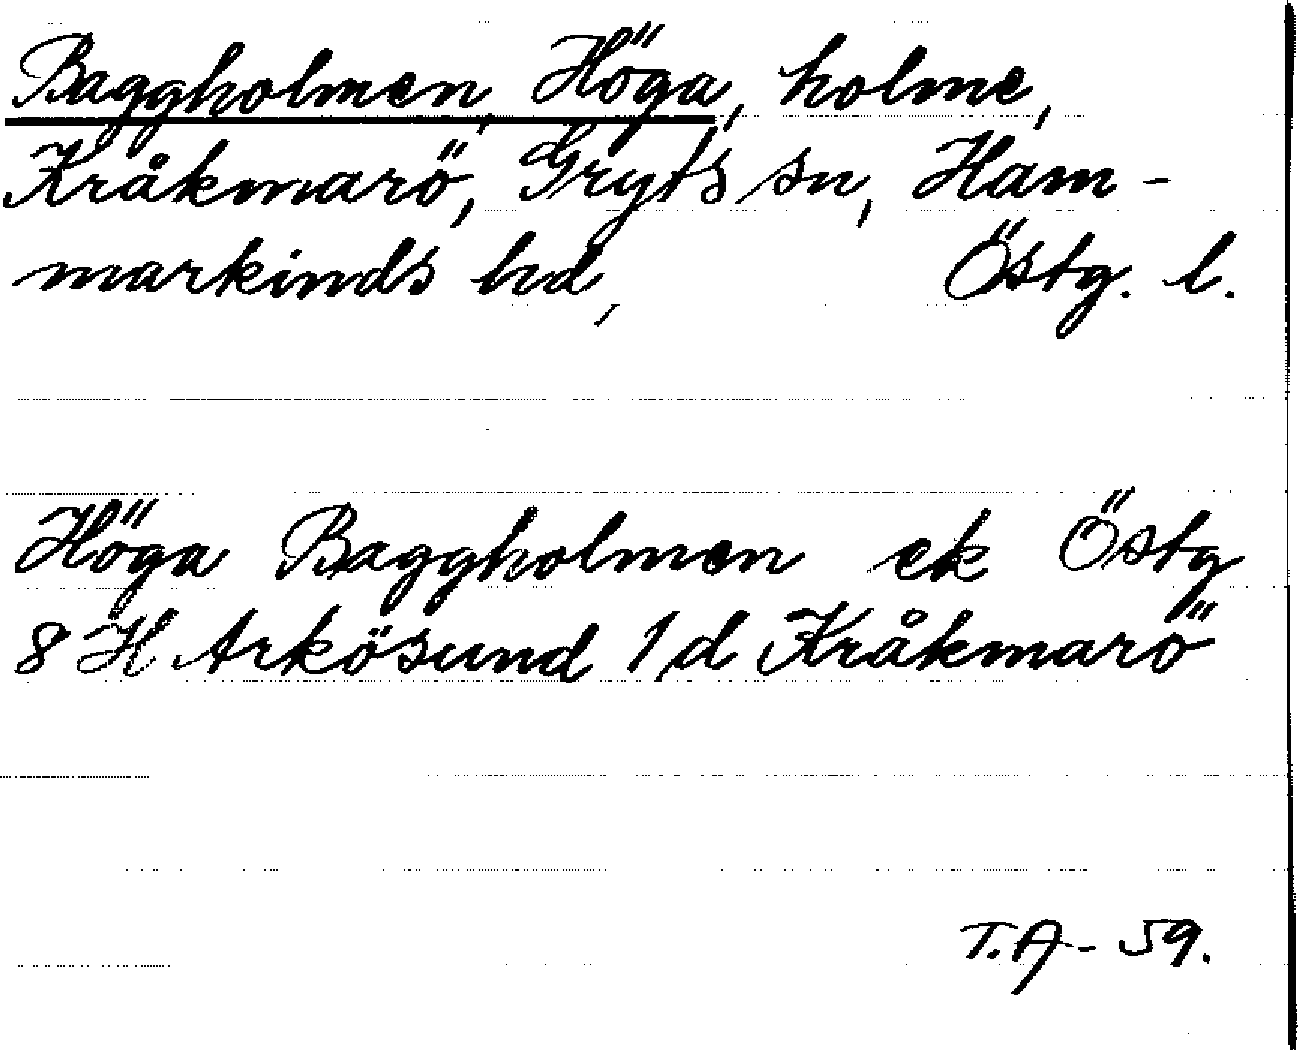 Baggholmen, Höga, holme,
Kråkmarö, Gryts sn, Ham-
markinds hd, Östg. l.
Höga Baggholmen ek Östg
8 H Arkösund 1 d Kråkmarö
T.A - 59.